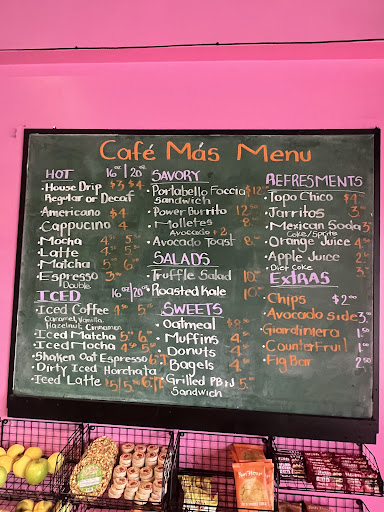 Café Más Menu
HOT 16oz/20oz
• House Drip $3 $4
Regular or Decaf
• Americano $4
• Cappucino 4
• Mocha 4.⁵⁰ 5.
• Latte 4. 5.
• Matcha 5. 6
• Espresso 3.⁰⁰
Double
ICED 16oz/20oz
• Iced Coffee 4.⁵⁰ 5.
Caramel, Vanilla,
Hazelnut, Cinnamon
• Iced Matcha 5. 6
• Iced Mocha 4.⁵⁰ 5.
• Shaken Oat Espresso
• Dirty Iced Horchata
• Iced Latte
SAVORY
• Portabello Foccia $12
Sandwich
• Power Burrito 12
• Molletes 8
Avocado +2
• Avocado Toast 8
SALADS
• Truffle Salad 10
• Roasted Kale 10
SWEETS
• Oatmeal
• Muffins 4
• Donuts 4
• Bagels 4
• Grilled PB n J 5
Sandwich
REFRESMENTS
• Topo Chico
• Jarritos 3
• Mexican Soda 3
Coke/Sprite
• Orange Juice 4
• Apple Juice 2
• Diet Coke
EXTRAS
• Chips $2.⁰⁰
• Avocado side 3
• Giardiniera 1.⁵⁰
• Counter Fruit 1.⁵⁰
• Fig Bar 2.⁵⁰